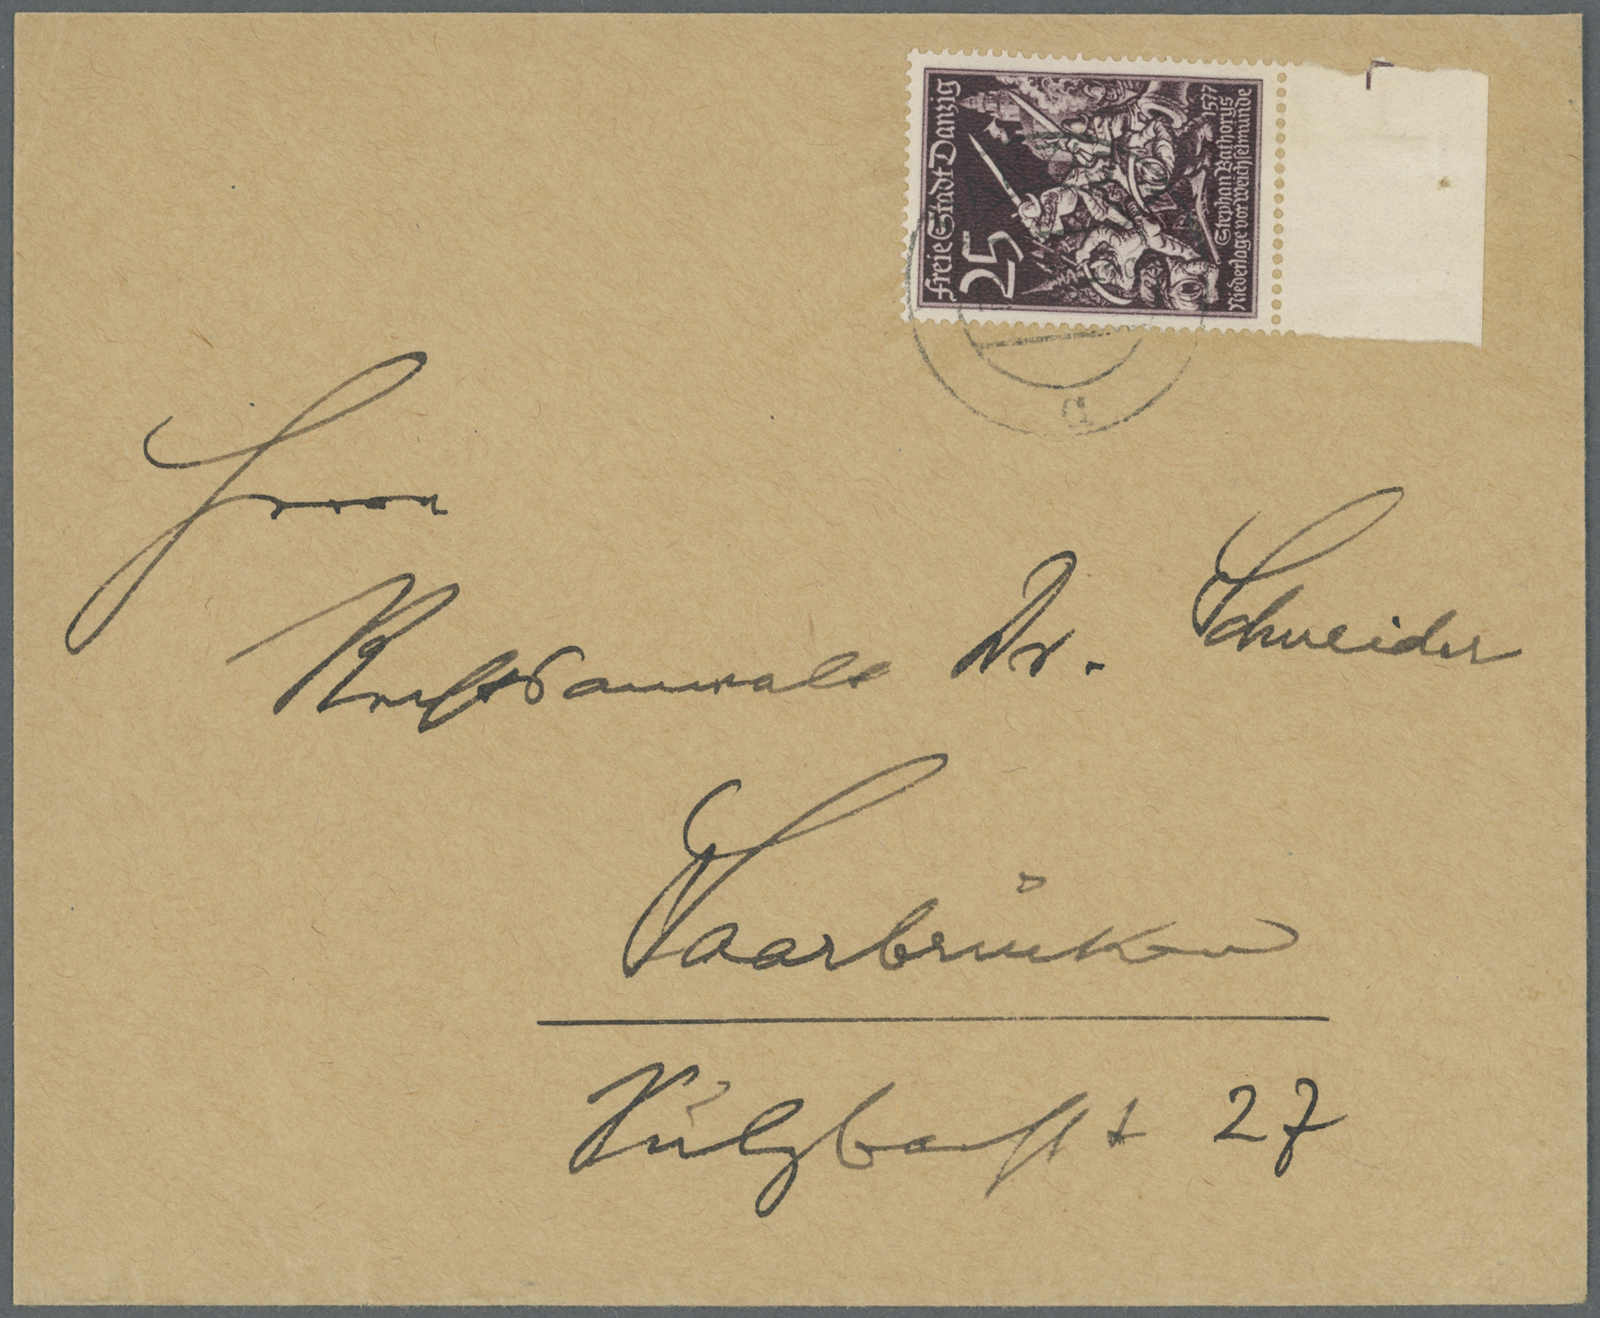 Freie Stadt Danzig
25
Stephan Bathorys 1577
Niederlage vor Weichselmünde
a
Herrn
Rechtsanwalt Dr. Schneider
Saarbrücken
Sulzbachst 27